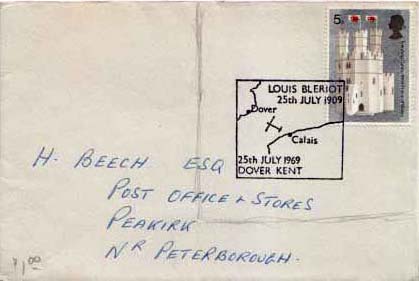 5D
LOUIS BLERIOT
25th JULY 1909
Dover
Calais
25th JULY 1969
DOVER KENT
H. BEECH ESQ
POST OFFICE & STORES
PEAKIRK
NR PETERBOROUGH.
$1.00